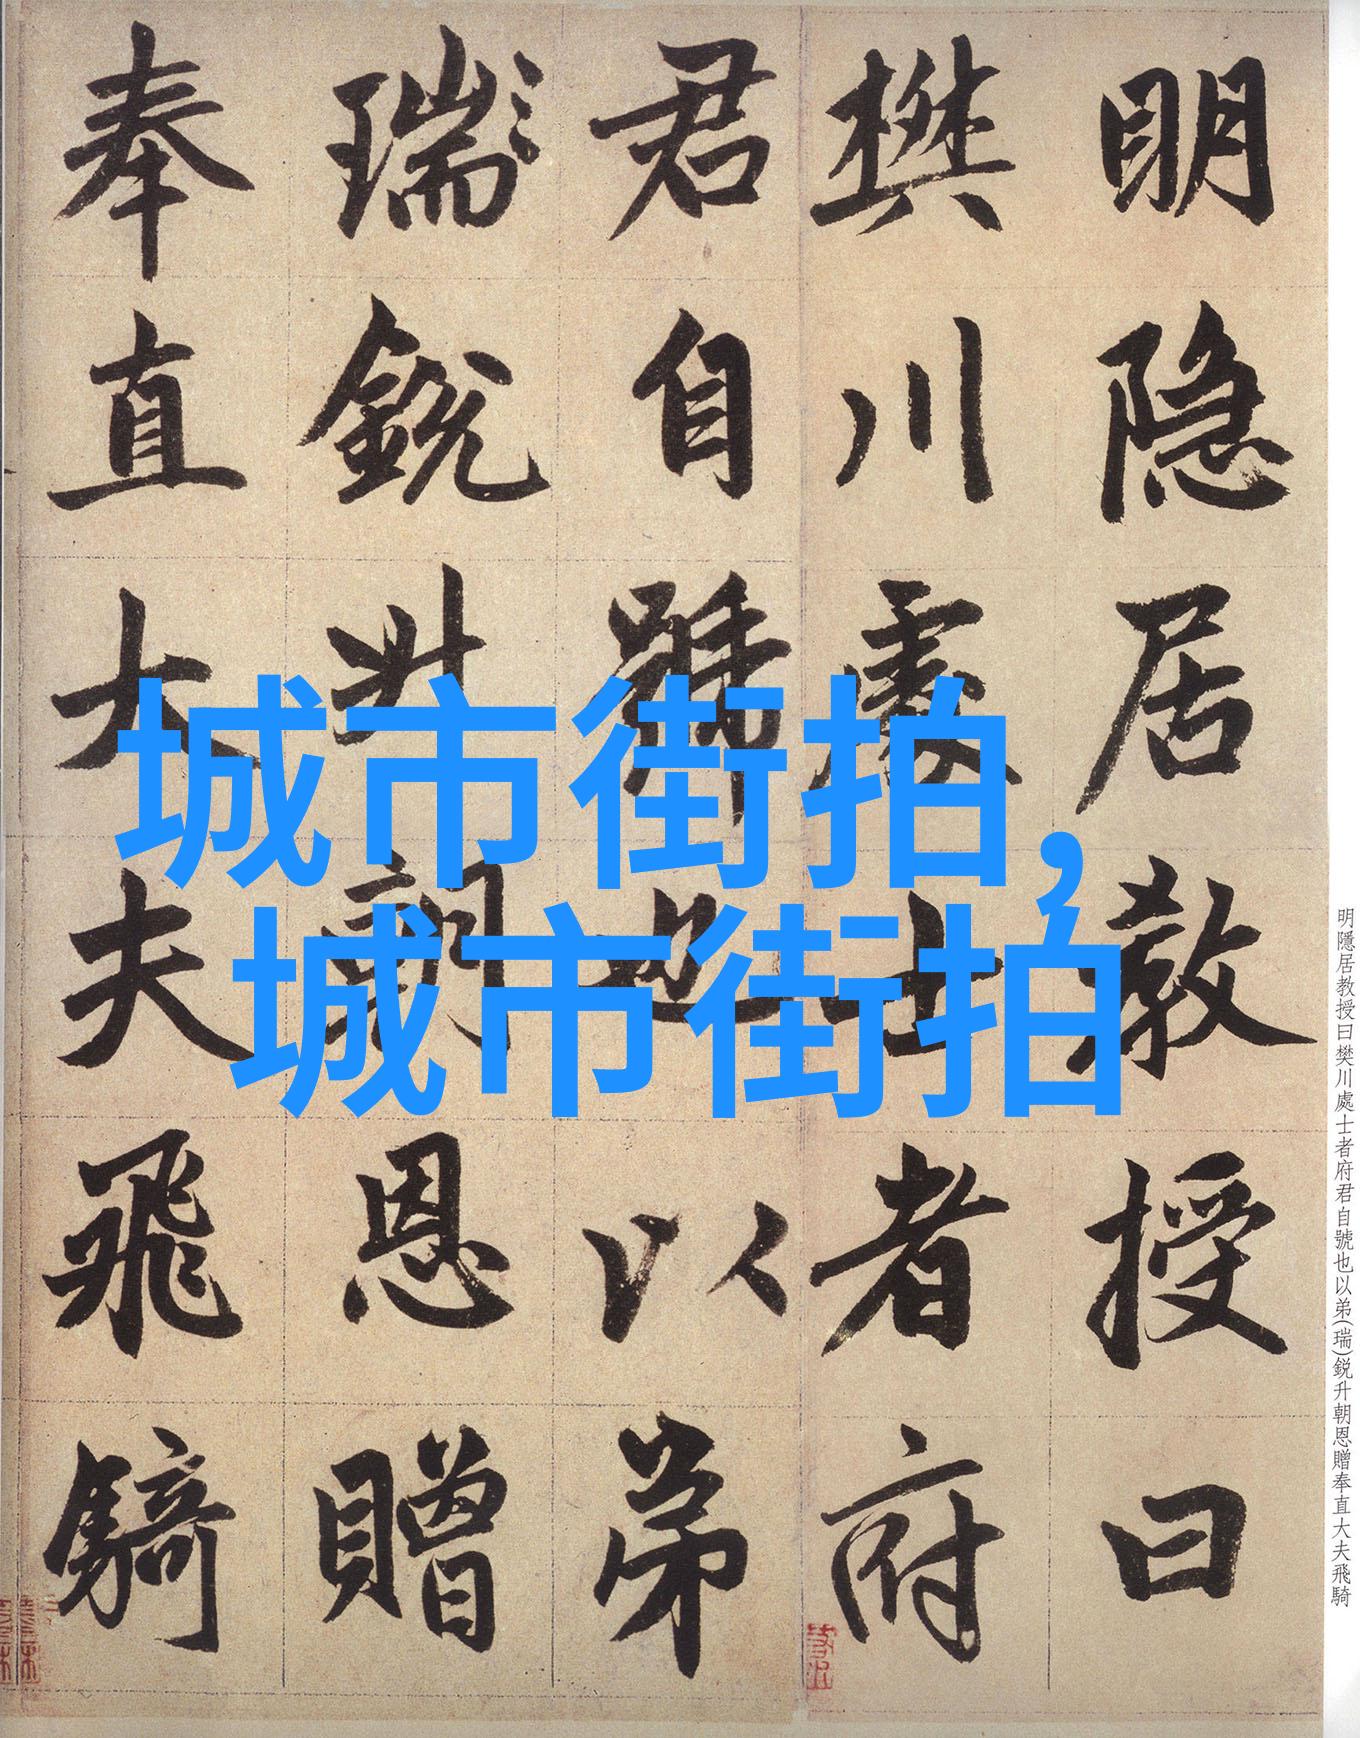 明隐居教授曰
樊川處士者府
君自號也以弟
瑞鋭升朝恩贈
奉直大夫飛騎
城市街拍,
城市街拍
明隱居教授曰樊川處士者府君自號也以弟(瑞)鋭升朝恩贈奉直大夫飛騎